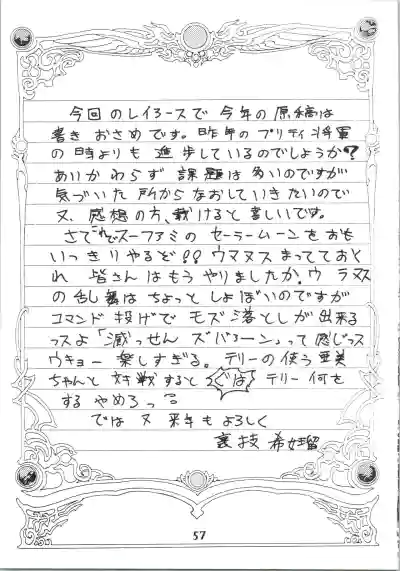 今回のレイアースで今年の原稿は
書きおさめです。昨年のプリティ将軍
の時よりも進歩しているのでしょうか?
あいかわらず課題は多いのですが
気づいた所からなおしていきたいので
又、感想の方、戴けると嬉しいです。
さてこれでスーファミのセーラームーンをおも
いっきりやるぞ!!ウマヌスまってておく
れ 皆さんはもうやりましたか。ウラヌス
の乱舞はちょっとしょぼいのですが
コマンド投げでモズ落としが出来る
っスよ「滅っせんズバァーン」って感じっス
ウキョー楽しすぎる。テリーの使う亜美
ちゃんと対戦すると ぐは テリー何を
するやめろっ
では又来年もよろしく
裏技 希
57